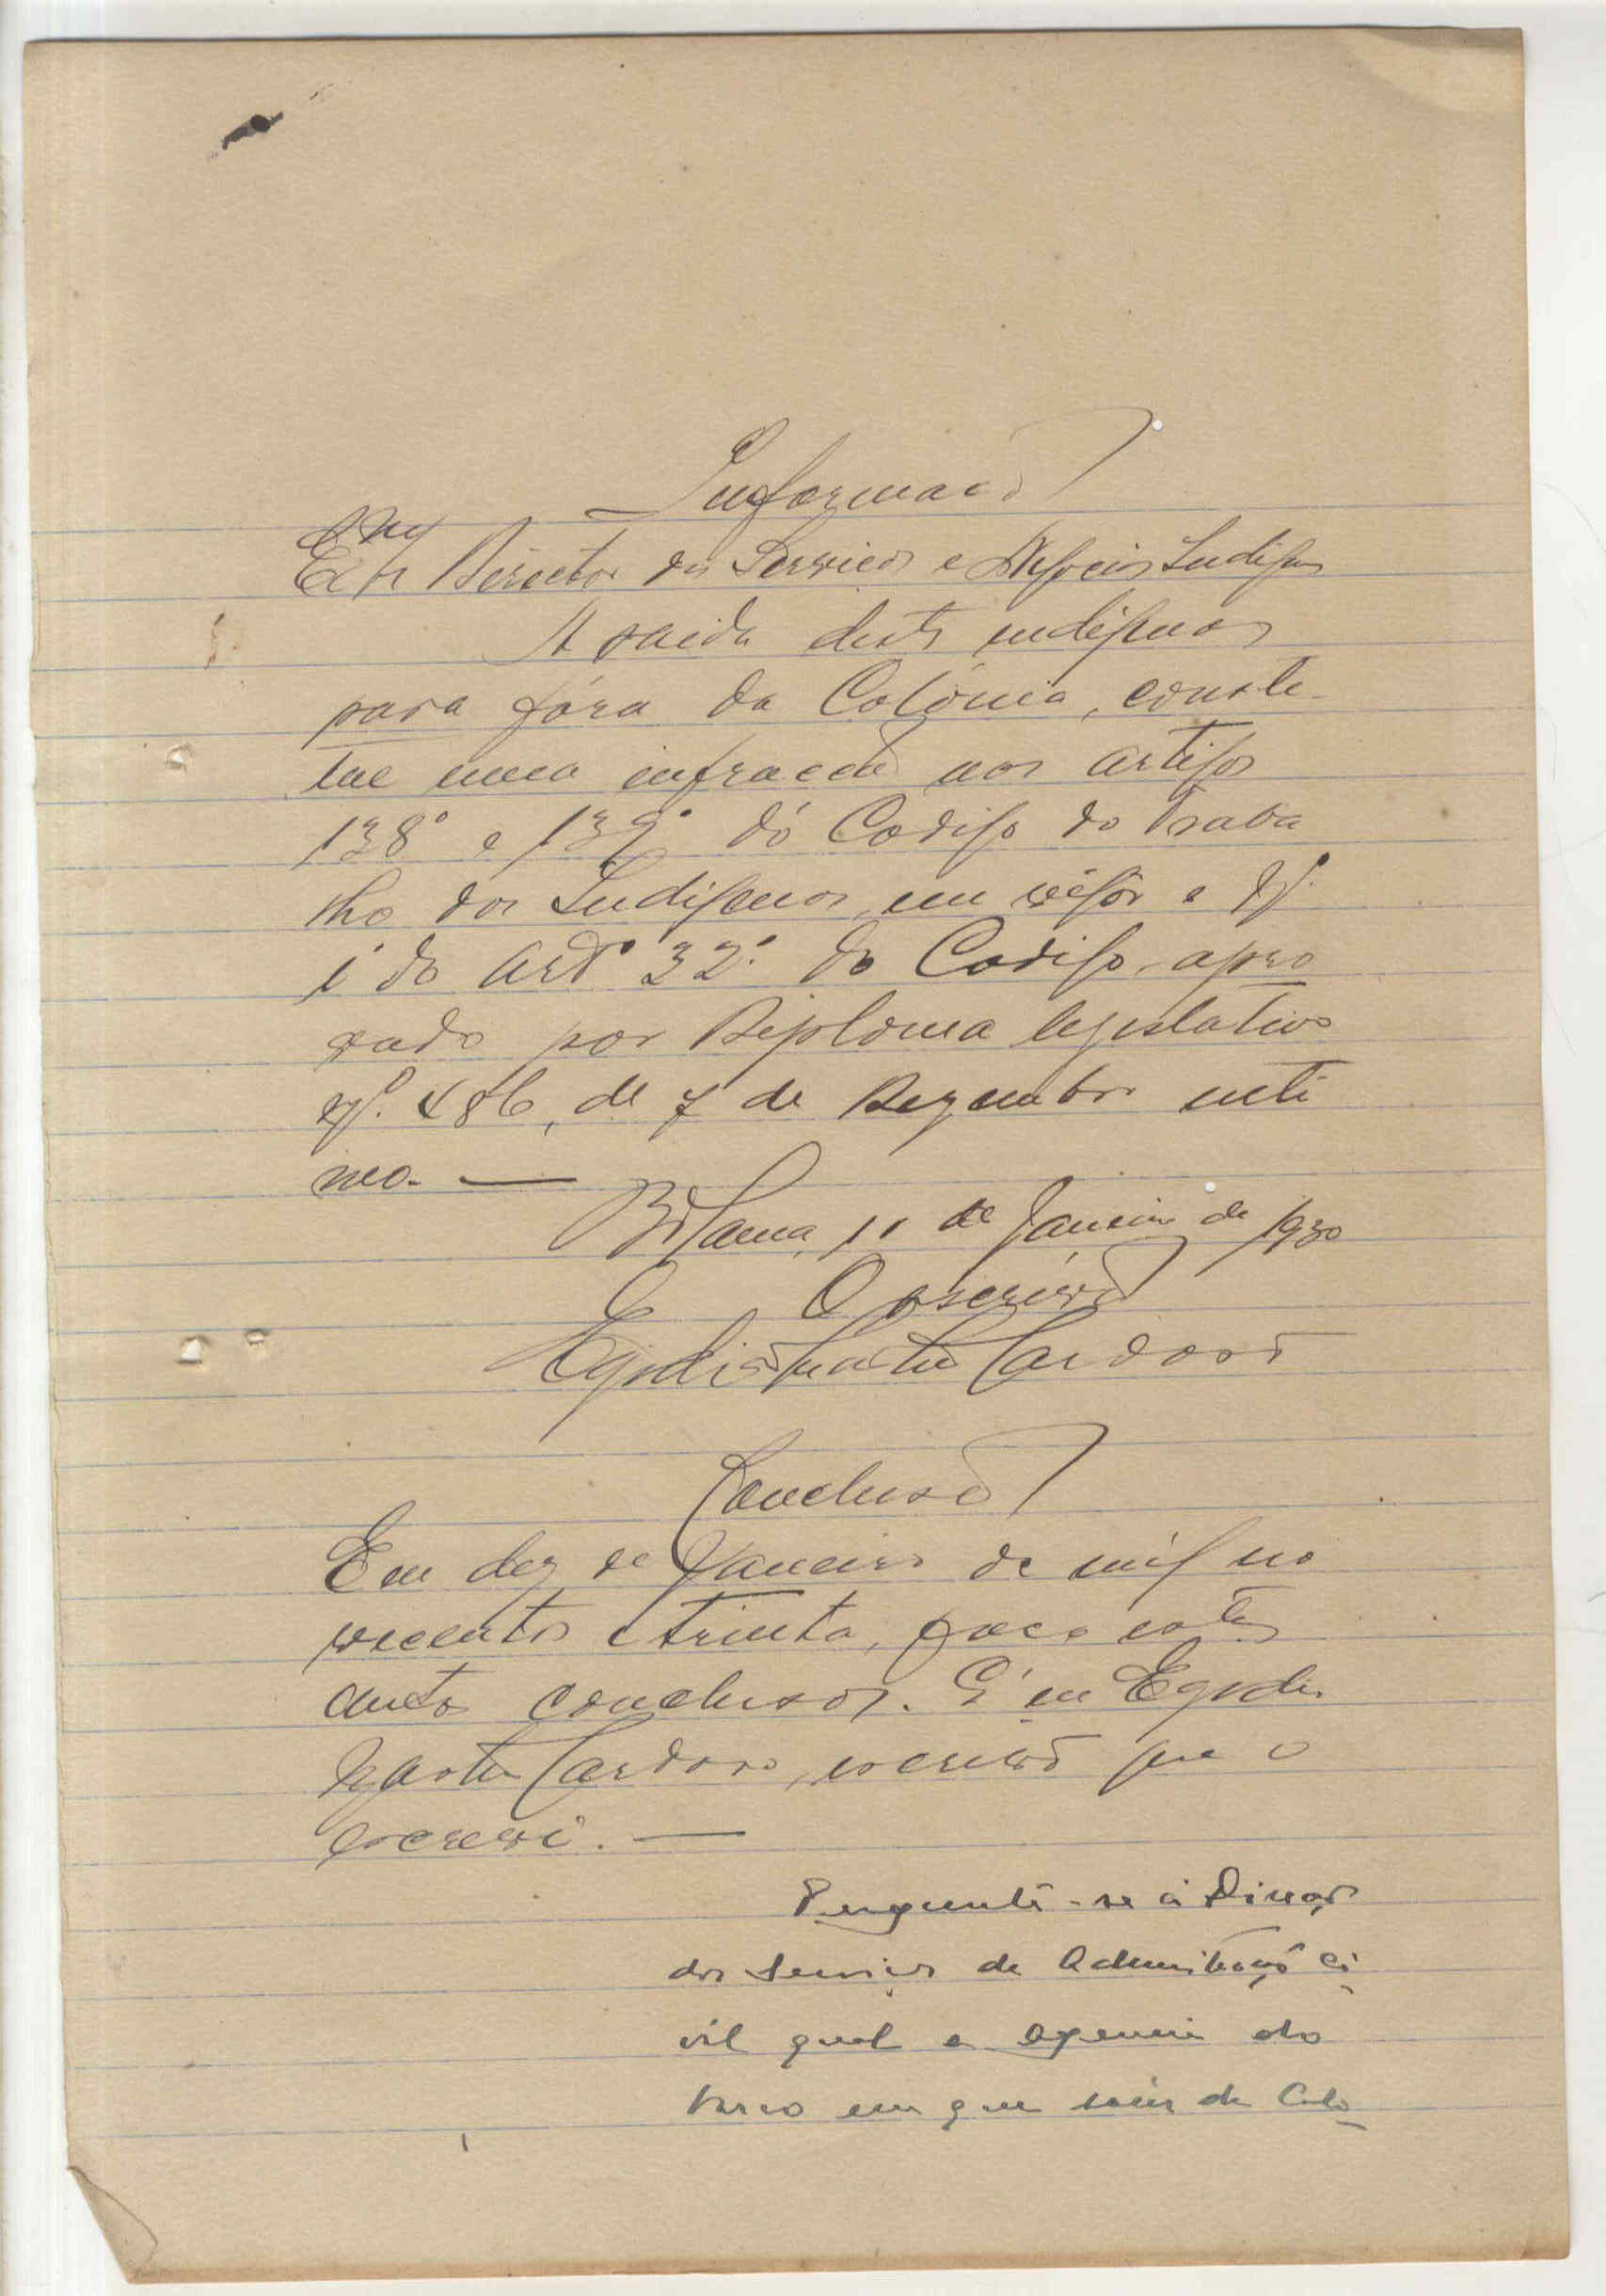 Informação
Exmo
Sr. Director dos Serviços e Negocios Indigenas
A saida destes indigenas
para fóra da Colónia, consti-
tue uma infracção aos artigos
138º e 139º do Codigo do Traba
lho dos Indigenas, em vigôr e Nº.
1 do artº 32º. do Codigo apro
vado por Diploma legislativo
Nº. 486, de 7 de Dezembro ulti
mo. —
Bolama, 11 de Janeiro de 1930
O escrivão
Cardoso
Conclusão
Em dez de Janeiro de mil no
vecentos e trinta, faço estes
autos conclusos. E eu Egidio
Cardoso, escrivão que o
escrevi. —
Pergunte-se á Direcção
dos Serviços de Administração Ci
vil qual a agencia do
barco em que saiu da Colo